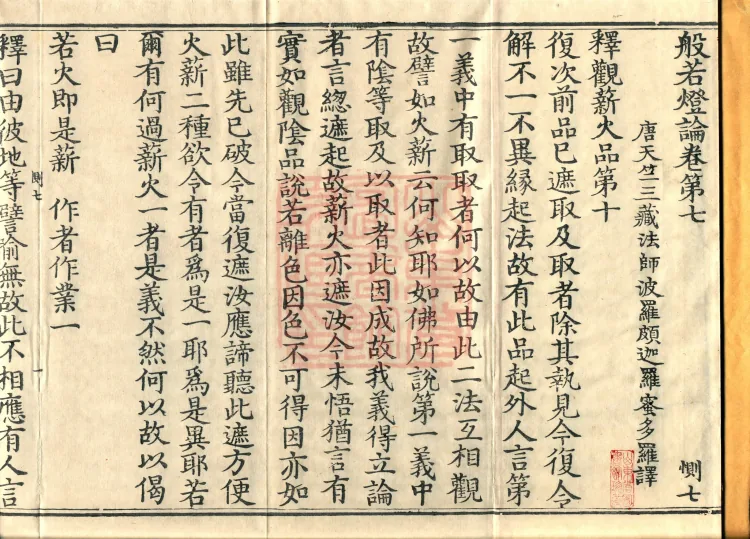 般若燈論卷第七
惻七
唐天竺三藏法師波羅頗迦羅蜜多羅譯
釋觀薪火品第十
復次前品已遮取及取者除其執見今復令
解不一不異緣起法故有此品起外人言第
一義中有取取者何以故由此二法互相觀
故譬如火薪云何知耶如佛所說第一義中
有陰等取及以取者此因成故我義得立論
者言緫遮起故薪火亦遮汝今未悟猶言有
實如觀陰品說若離色因色不可得因亦如
此雖先已破今當復遮汝應諦聽此遮方便
火薪二種欲令有者爲是一耶爲是異耶若
爾有何過薪火一者是義不然何以故以偈
曰
若火即是薪　作者作業一
惻七
一
釋曰由彼地等譬喻無故此不相應有人言